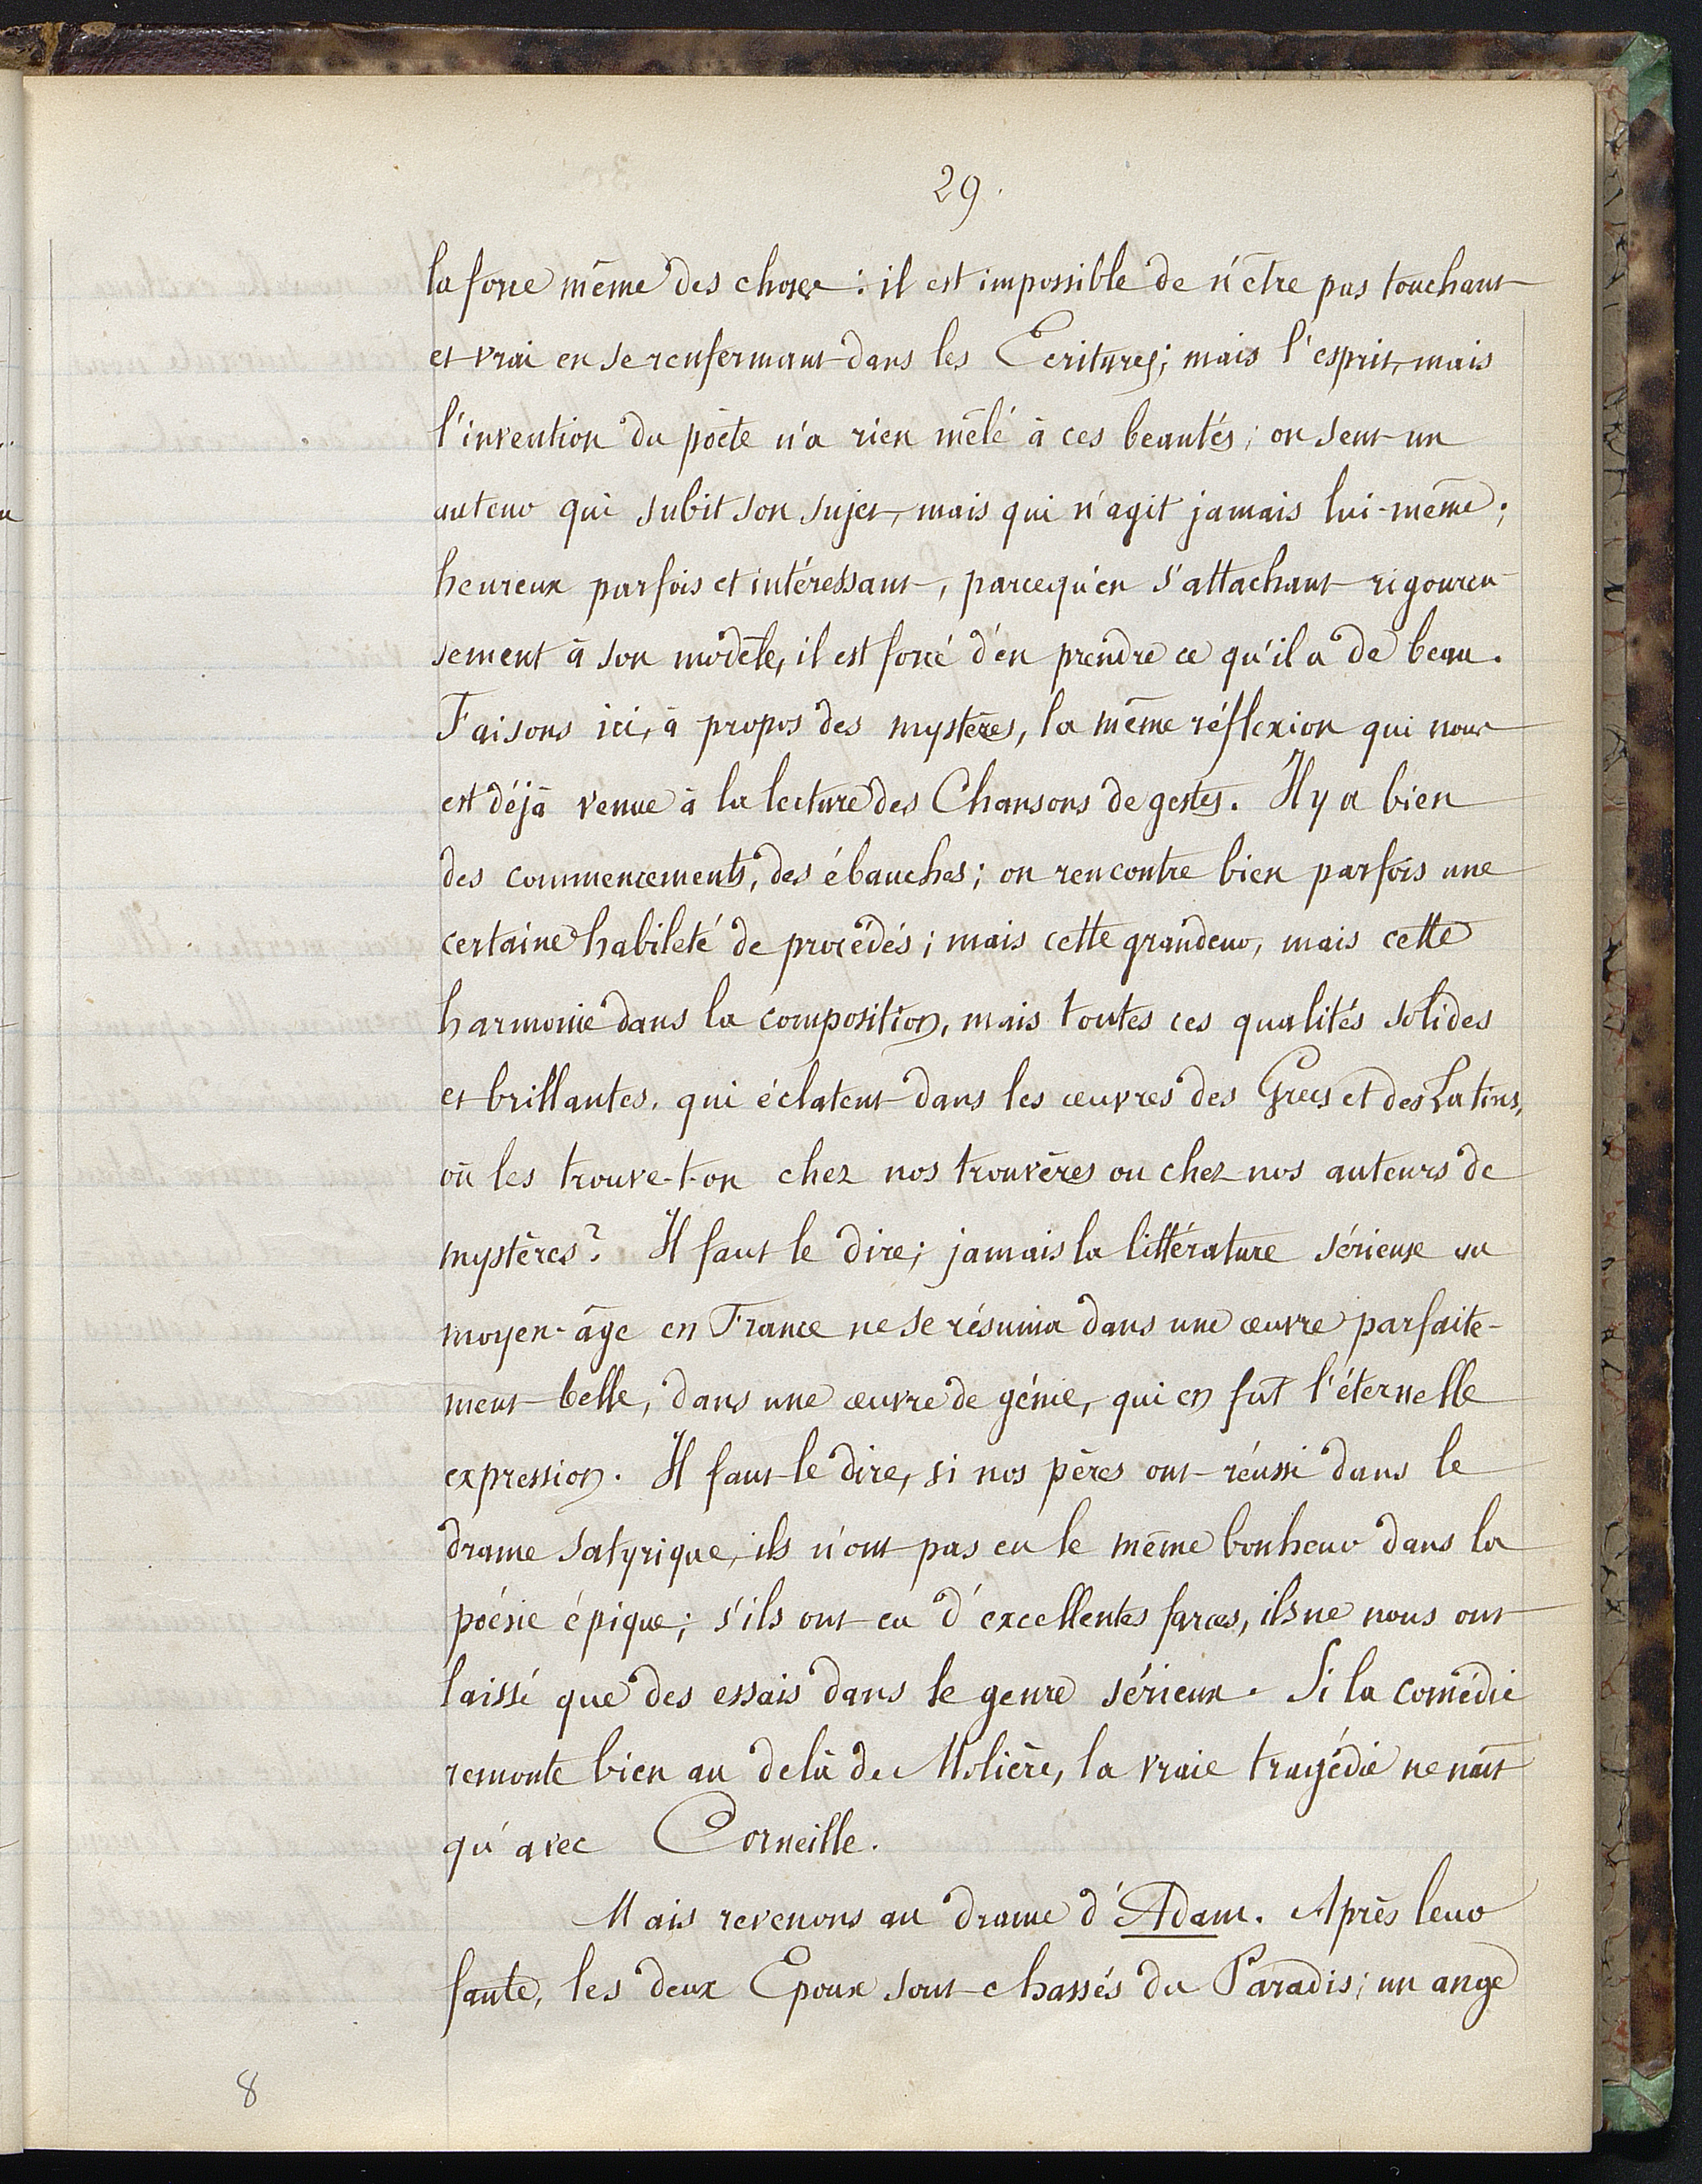 29.
la force même des choses : il est impossible de n'être pas touchant
et vrai en se renfermant dans les Ecritures; mais l'esprit, mais
l'invention du poëte n'a rien mêlé à ces beautés; on sent un
auteur qui subit son sujet, mais qui n'agit jamais lui-même;
heureux parfois et intéressant, parcequ'en s'attachant rigoureu-
sement à son modèle, il est forcé d'en prendre ce qu'il a de beau.
Faisons ici, à propos des mystères, la même réflexion qui nous
est déjà venue à la lecture des Chansons de gestes. Il y a bien
des commencements, des ébauches; on rencontre bien parfois une
certaine habileté de procédés; mais cette grandeur, mais cette
harmonie dans la composition, mais toutes ces qualités solides
et brillantes, qui éclatent dans les œuvres des Grecs et des Latins,
où les trouve-t-on chez nos trouvères ou chez nos auteurs de
mystères? Il faut le dire; jamais la littérature sérieuse au
moyen-âge en France ne se résuma dans une œuvre parfaite-
ment belle, dans une œuvre de génie, qui en fut l'éternelle
expression. Il faut le dire, si nos pères ont réussi dans le
drame satyrique, ils n'ont pas eu le même bonheur dans la
poésie épique; s'ils ont eu d'excellentes farces, ils ne nous ont
laissé que des essais dans le genre sérieux. Si la comédie
remonte bien au delà de Molière, la vraie tragédie ne naît
qu'avec Corneille.
Mais revenons au drame d'Adam. Après leur
faute, les deux Epoux sont chassés du Paradis; un ange
8